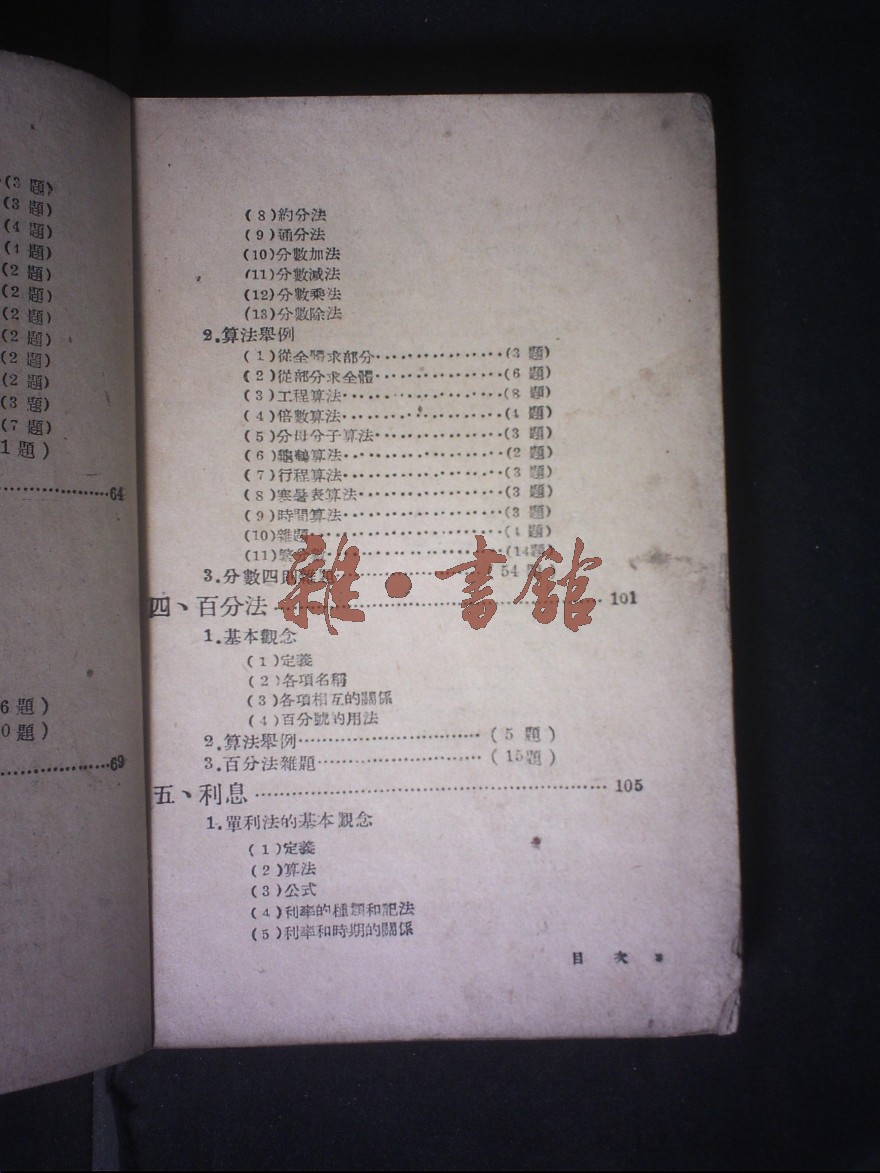 (3 題)
(3 題)
(4 題)
(4 題)
(2 題)
(2 題)
(2 題)
(2 題)
(2 題)
(2 題)
(3 題)
(7 題)
1 題)
64
6 題)
0 題)
69
(8)約分法
(9)通分法
(10)分數加法
(11)分數減法
(12)分數乘法
(13)分數除法
2.算法舉例
(1)從全體求部分················(3 題)
(2)從部分求全體················(6 題)
(3)工程算法····················(8 題)
(4)倍數算法····················(4 題)
(5)分母分子算法················(3 題)
(6)龜鶴算法····················(2 題)
(7)行程算法····················(3 題)
(8)寒暑表算法··················(3 題)
(9)時間算法····················(3 題)
(10)雜題·······················(4 題)
(11)繁分數·····················(14題)
3.分數四則雜題··················54 題)
四、百分法························101
1.基本觀念
(1)定義
(2)各項名稱
(3)各項相互的關係
(4)百分號的用法
2.算法舉例······················(5 題)
3.百分法雜題····················(15題)
五、利息··························105
1.單利法的基本觀念
(1)定義
(2)算法
(3)公式
(4)利率的種類和記法
(5)利率和時期的關係
目 次 3
雜·書館